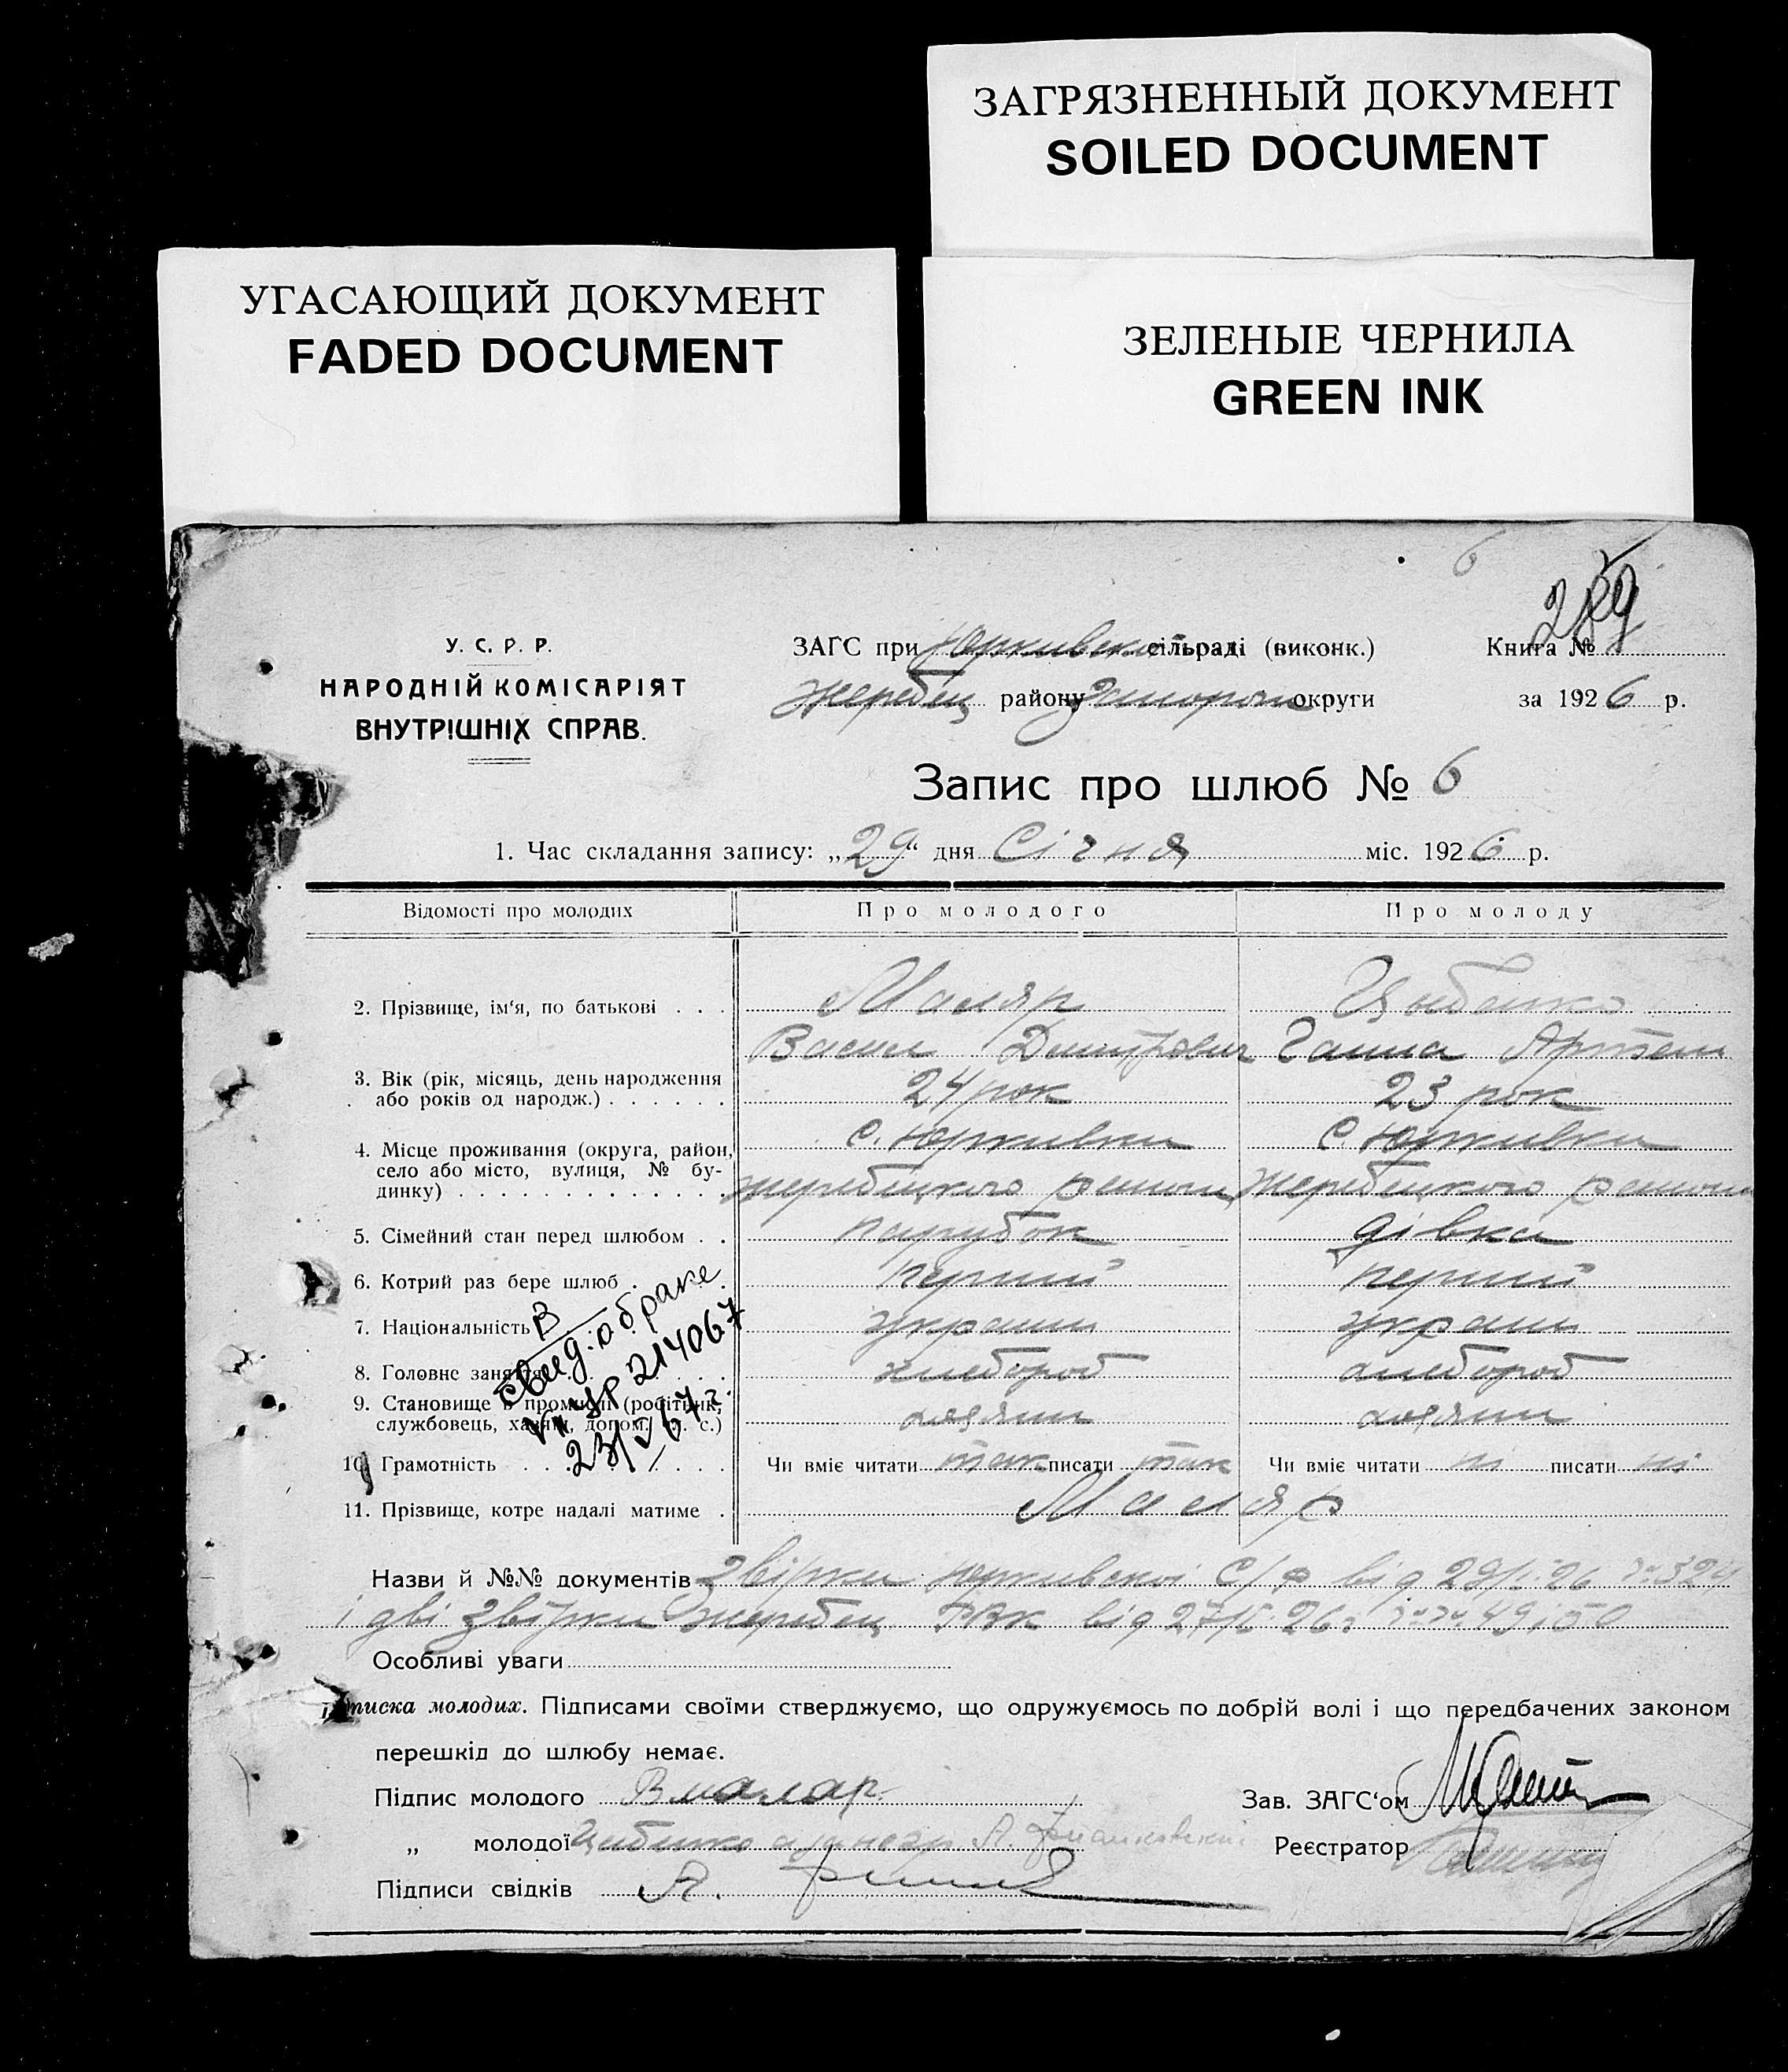 ЗАГРЯЗНЕННЫЙ ДОКУМЕНТ
SOILED DOCUMENT
УГАСАЮЩИЙ ДОКУМЕНТ
FADED DOCUMENT
ЗЕЛЕНЫЕ ЧЕРНИЛА
GREEN INK
6
У. С. Р. Р.
НАРОДНІЙ КОМІСАРІЯТ
ВНУТРІШНІХ СПРАВ.
ЗАГС при Юрківско сільраді (виконк.)
Жеребец району Запорож округи
Книга №
за 1926 р.
Запис про шлюб № 6
1. Час складання запису: „29“ дня Січня міс. 1926 р.
Відомості про молодих Про молодого Про молоду
2. Прізвище, ім‘я, по батькові . . . Маляр Цыбенко
Васил Дмитрович Ганна Артем
3. Вік (рік, місяць, день народження
або років од народж.) . . . . . . 24 рок 23 рок
4. Місце проживання (округа, район, с. Юркивки с. Юркивки
село або місто, вулиця, № бу-
динку) . . . . . . . . . . . . . Жеребецкого району Жеребецкого району
5. Сімейний стан перед шлюбом . . парубок дівка
6. Котрий раз бере шлюб . перший перший
7. Національність украин украин
8. Головне заняття хлебороб хлебороб
9. Становище в промислі (робітник,
службовець, хазяїн, допом. ч. с.) хазяин хазяин
В
свид. о браке
23/V 67 г.
10. Грамотність Чи вміє читати так писати так Чи вміє читати ні писати ні
11. Прізвище, котре надалі матиме . Маляр
Назви й №№ документів Звірки Юркивскої С/р від 29/I 26 № 324
і дві звірки Жеребец РВК від 27/I 26 г №№ 49 і 50
Особливі уваги
Підписка молодих. Підписами своїми стверджуємо, що одружуємось по добрій волі і що передбачених законом
перешкід до шлюбу немає.
Підпис молодого В маляр. Зав. ЗАГС‘ом
„ молодої Цибенко А. Реєстратор
Підписи свідків А.